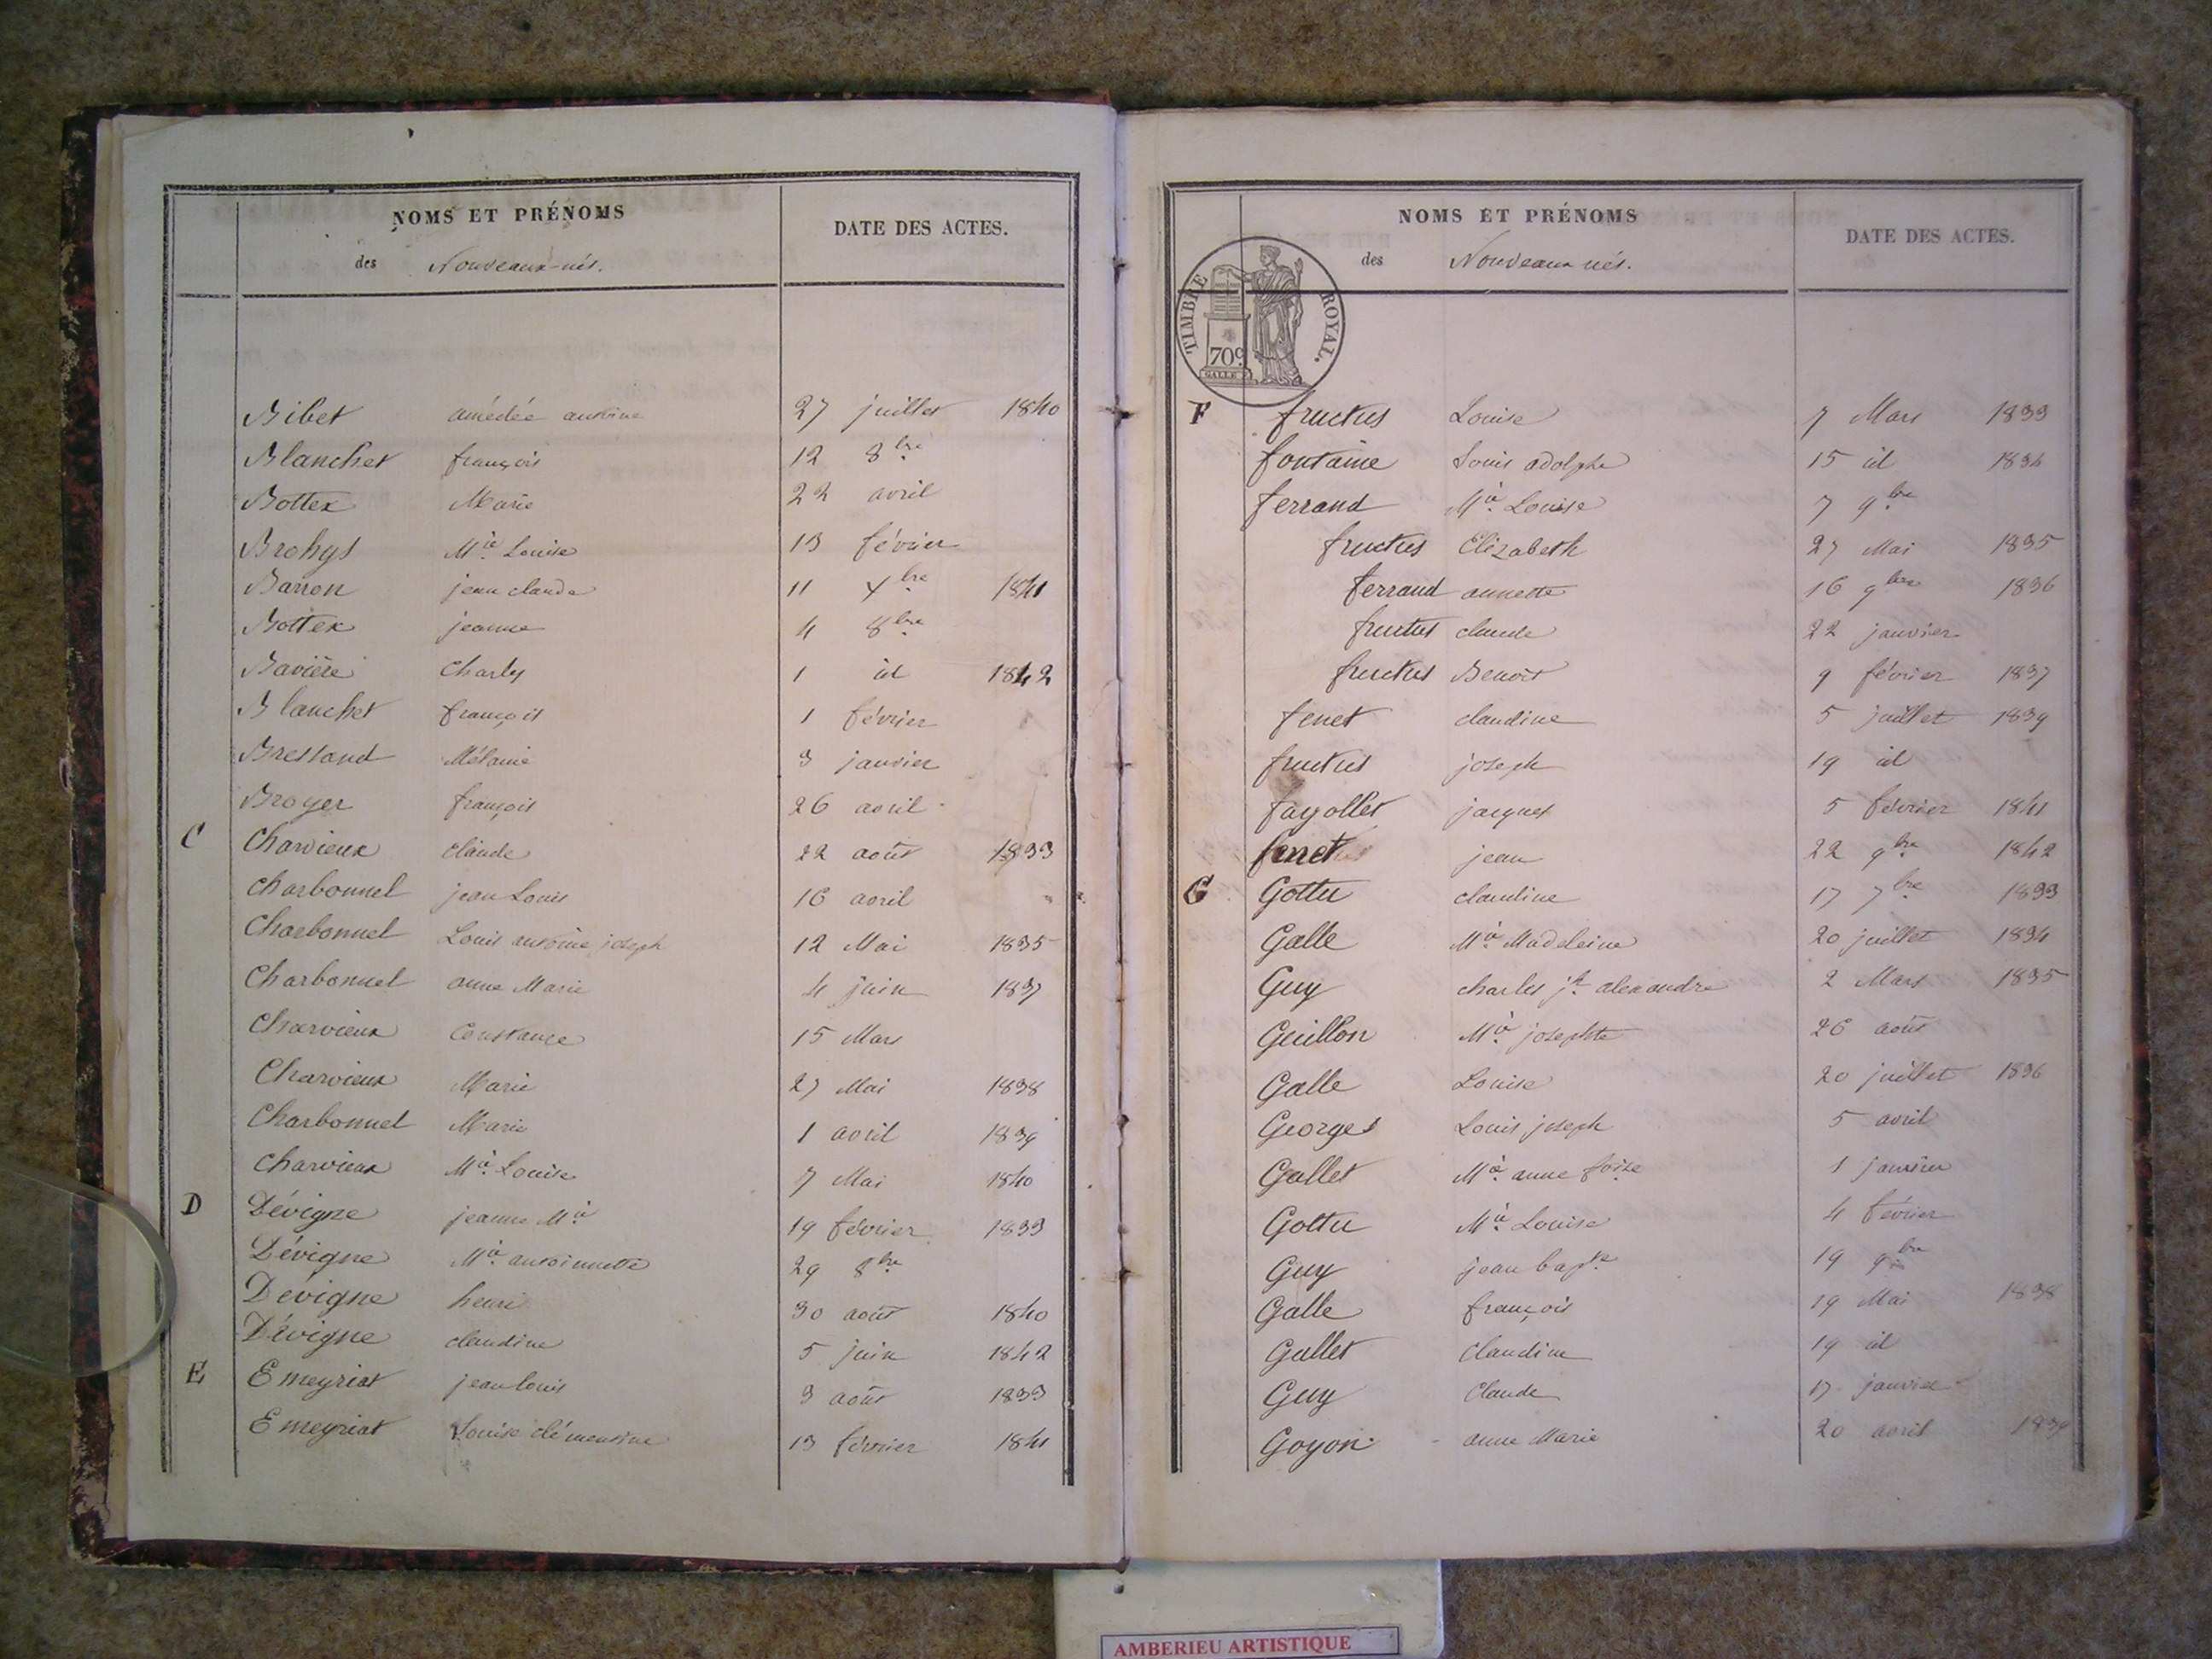 NOMS ET PRÉNOMS
des Nouveaux-nés.
DATE DES ACTES.
Bibet amédée antoine 27 juillet 1840
Blanchet françois 12 8bre
Bottex Marie 22 avril
Brohys Mie Louise 13 février
Barron jean claude 11 Xbre 1841
Bottex jeanne 4 8bre
Bavière Charles 1 id 1842
Blanchet françois 1 février
Bressand Mélanie 3 janvier
Broyer françois 26 avril
C Charvieux claude 22 août 1833
Charbonnel jean Louis 16 avril
Charbonnel Louis antoine joseph 12 Mai 1835
Charbonnel anne Marie 4 juin 1837
Charvieux Constance 15 Mars
Charvieux Marie 27 Mai 1838
Charbonnel Marie 1 avril 1839
Charvieux Mie Louise 7 Mai 1840
D Dévigne jeanne Mie 19 février 1833
Dévigne Mie antoinette 29 8bre
Dévigne henri 30 août 1840
Dévigne claudine 5 juin 1842
E Emeyriat jean louis 3 août 1833
Emeyriat Louise clémentine 13 février 1841
NOMS ET PRÉNOMS
des Nouveaux nés.
DATE DES ACTES.
TIMBRE ROYAL.
70c
GALLE F
F fructus Louise 7 Mars 1833
fontaine Louis adolphe 15 id 1834
ferrand Mie Louise 7 9bre
fructus Elizabeth 27 Mai 1835
ferrand annette 16 9bre 1836
fructus claude 22 janvier
fructus Benoit 9 février 1837
fenet claudine 5 juillet 1839
fructus joseph 19 id
fayollet jacques 5 février 1841
fenet jean 22 9bre 1842
G Gottu claudine 17 7bre 1833
Galle Mie Madeleine 20 juillet 1834
Guy charles jh alexandre 2 Mars 1835
Guillon Mie josephte 26 août
Galle Louise 20 juillet 1836
Georges Louis joseph 5 avril
Gallet Mie anne foise 1 janvier
Gottu Mie Louise 4 février
Guy jean bapte 19 9bre
Galle françois 19 Mai 1838
Gallet Claudine 19 id
Guy Claude 17 janvier
Goyon anne Marie 20 avril 1839
AMBERIEU ARTISTIQUE